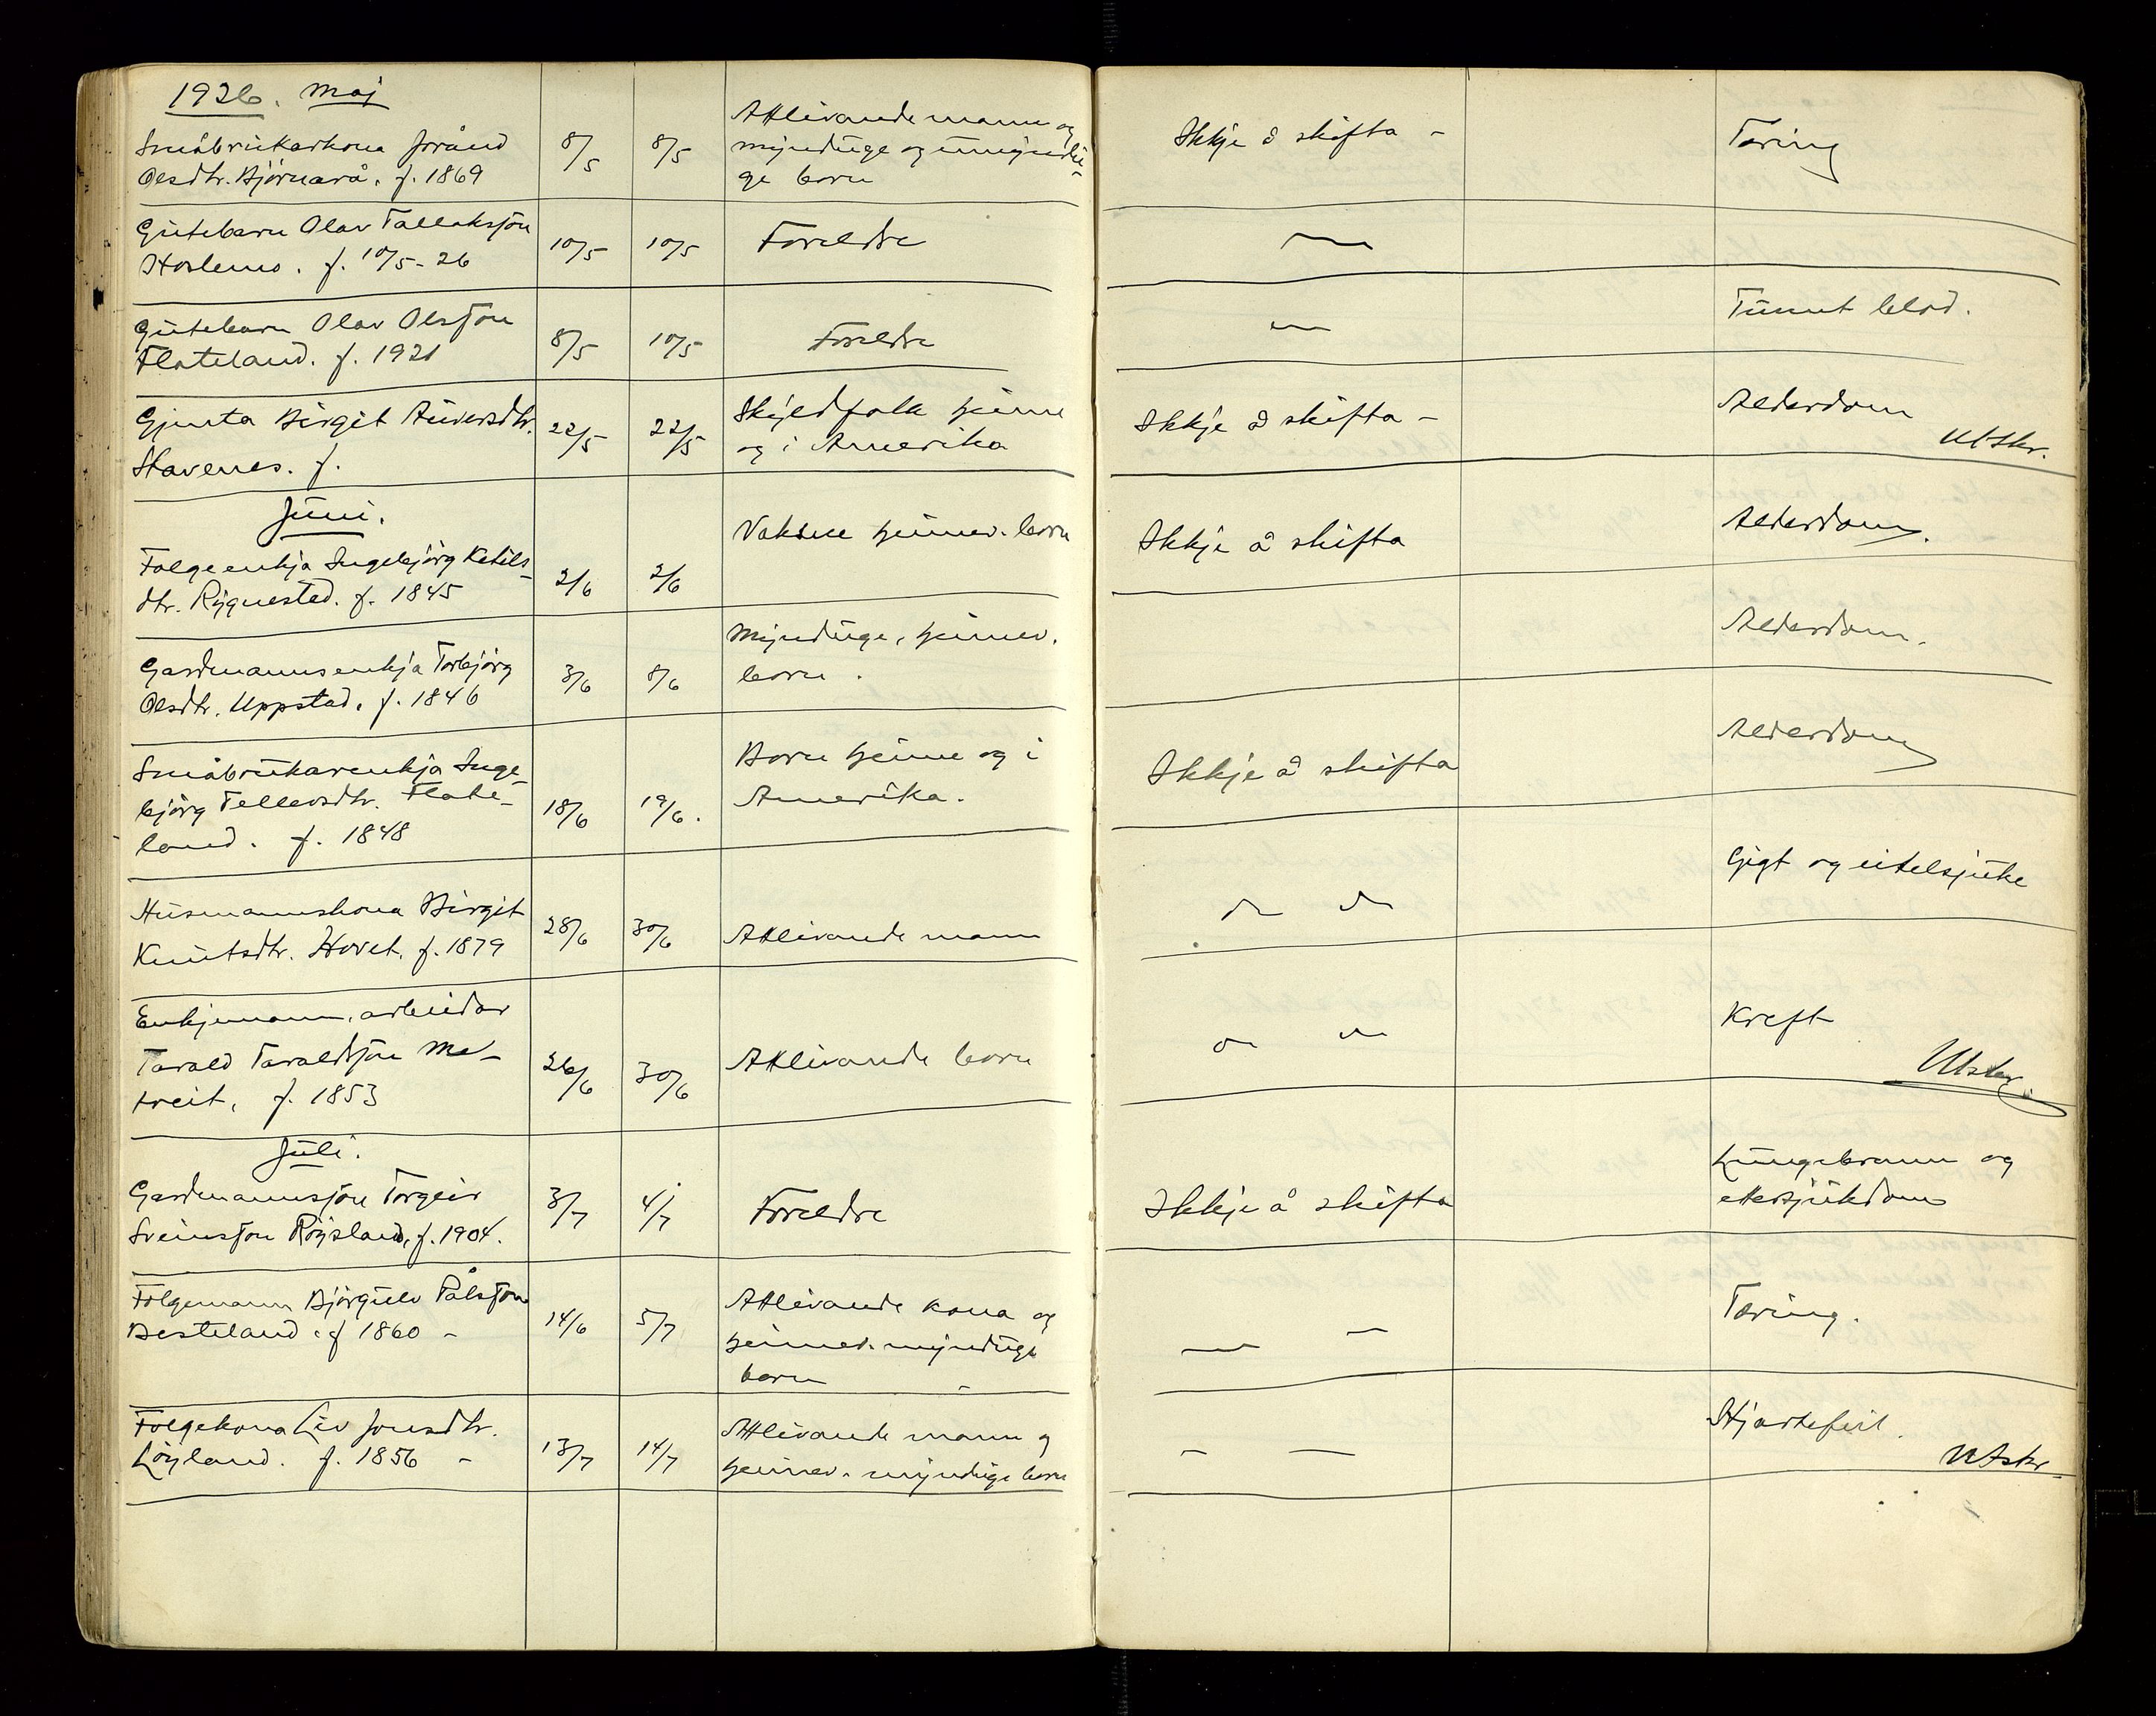 1926. Maj
Småbrukarkona Jorånd
Olsdtr. Bjørnarå. f. 1869
8/5
8/5
Attlivande mann og
mynduge og umyndu-
ge born
Ikkje å skifta -
Tæring
Gutebarn Olav Tallaksson
Hoslemo. f. 10/5-26
10/5
10/5
Foreldre
Gutebarn Olav Olsson
Flateland. f. 1921
8/5
10/5
Foreldre
Tunnt blod.
Gjenta Birgit Auversdtr.
Stavenes. f.
22/5
22/5
Skyldfolk heime
og i Amerika
Ikkje å skifta -
Alderdom
Utskr.
Juni.
Folgeenkja Ingebjørg Ketils-
dtr. Rygnestad. f. 1845
2/6
2/6
Vaksne heimev. born
Ikkje å skifta
Alderdom.
Gardmannsenkja Torbjørg
Olsdtr. Uppstad. f. 1846
3/6
8/6
Mynduge, heimev.
born.
Alderdom.
Småbrukarenkja Inge-
bjørg Tellevsdtr. Flate-
land. f. 1848
18/6
19/6.
Born heime og i
Amerika.
Ikkje å skifta
Alderdom
Husmannskona Birgit
Knutsdtr. Hovet. f. 1879
28/6
30/6
Attlivande mann
Gigt og eitelsjuke
Enkjemann, arbeidar
Tarald Taraldsson Me-
treit, f. 1853
26/6
30/6
Attlivande born
Kreft
Utskr.
Juli.
Gardmannsson Torgeir
Sveinsson Røysland, f. 1904.
3/7
4/7
Foreldre
Ikkje å skifta
Lungebrann og
ettersjukdom
Folgemann Bjørgulv Pålsson
Besteland. f 1860 -
14/6
5/7
Attlivande kona og
heimev. mynduge
born
Tæring.
Folgekona Liv Jonsdtr.
Løyland. f. 1856 -
13/7
14/7
Attlivande mann og
heimev. myndige born
Hjartefeil.
Utskr.